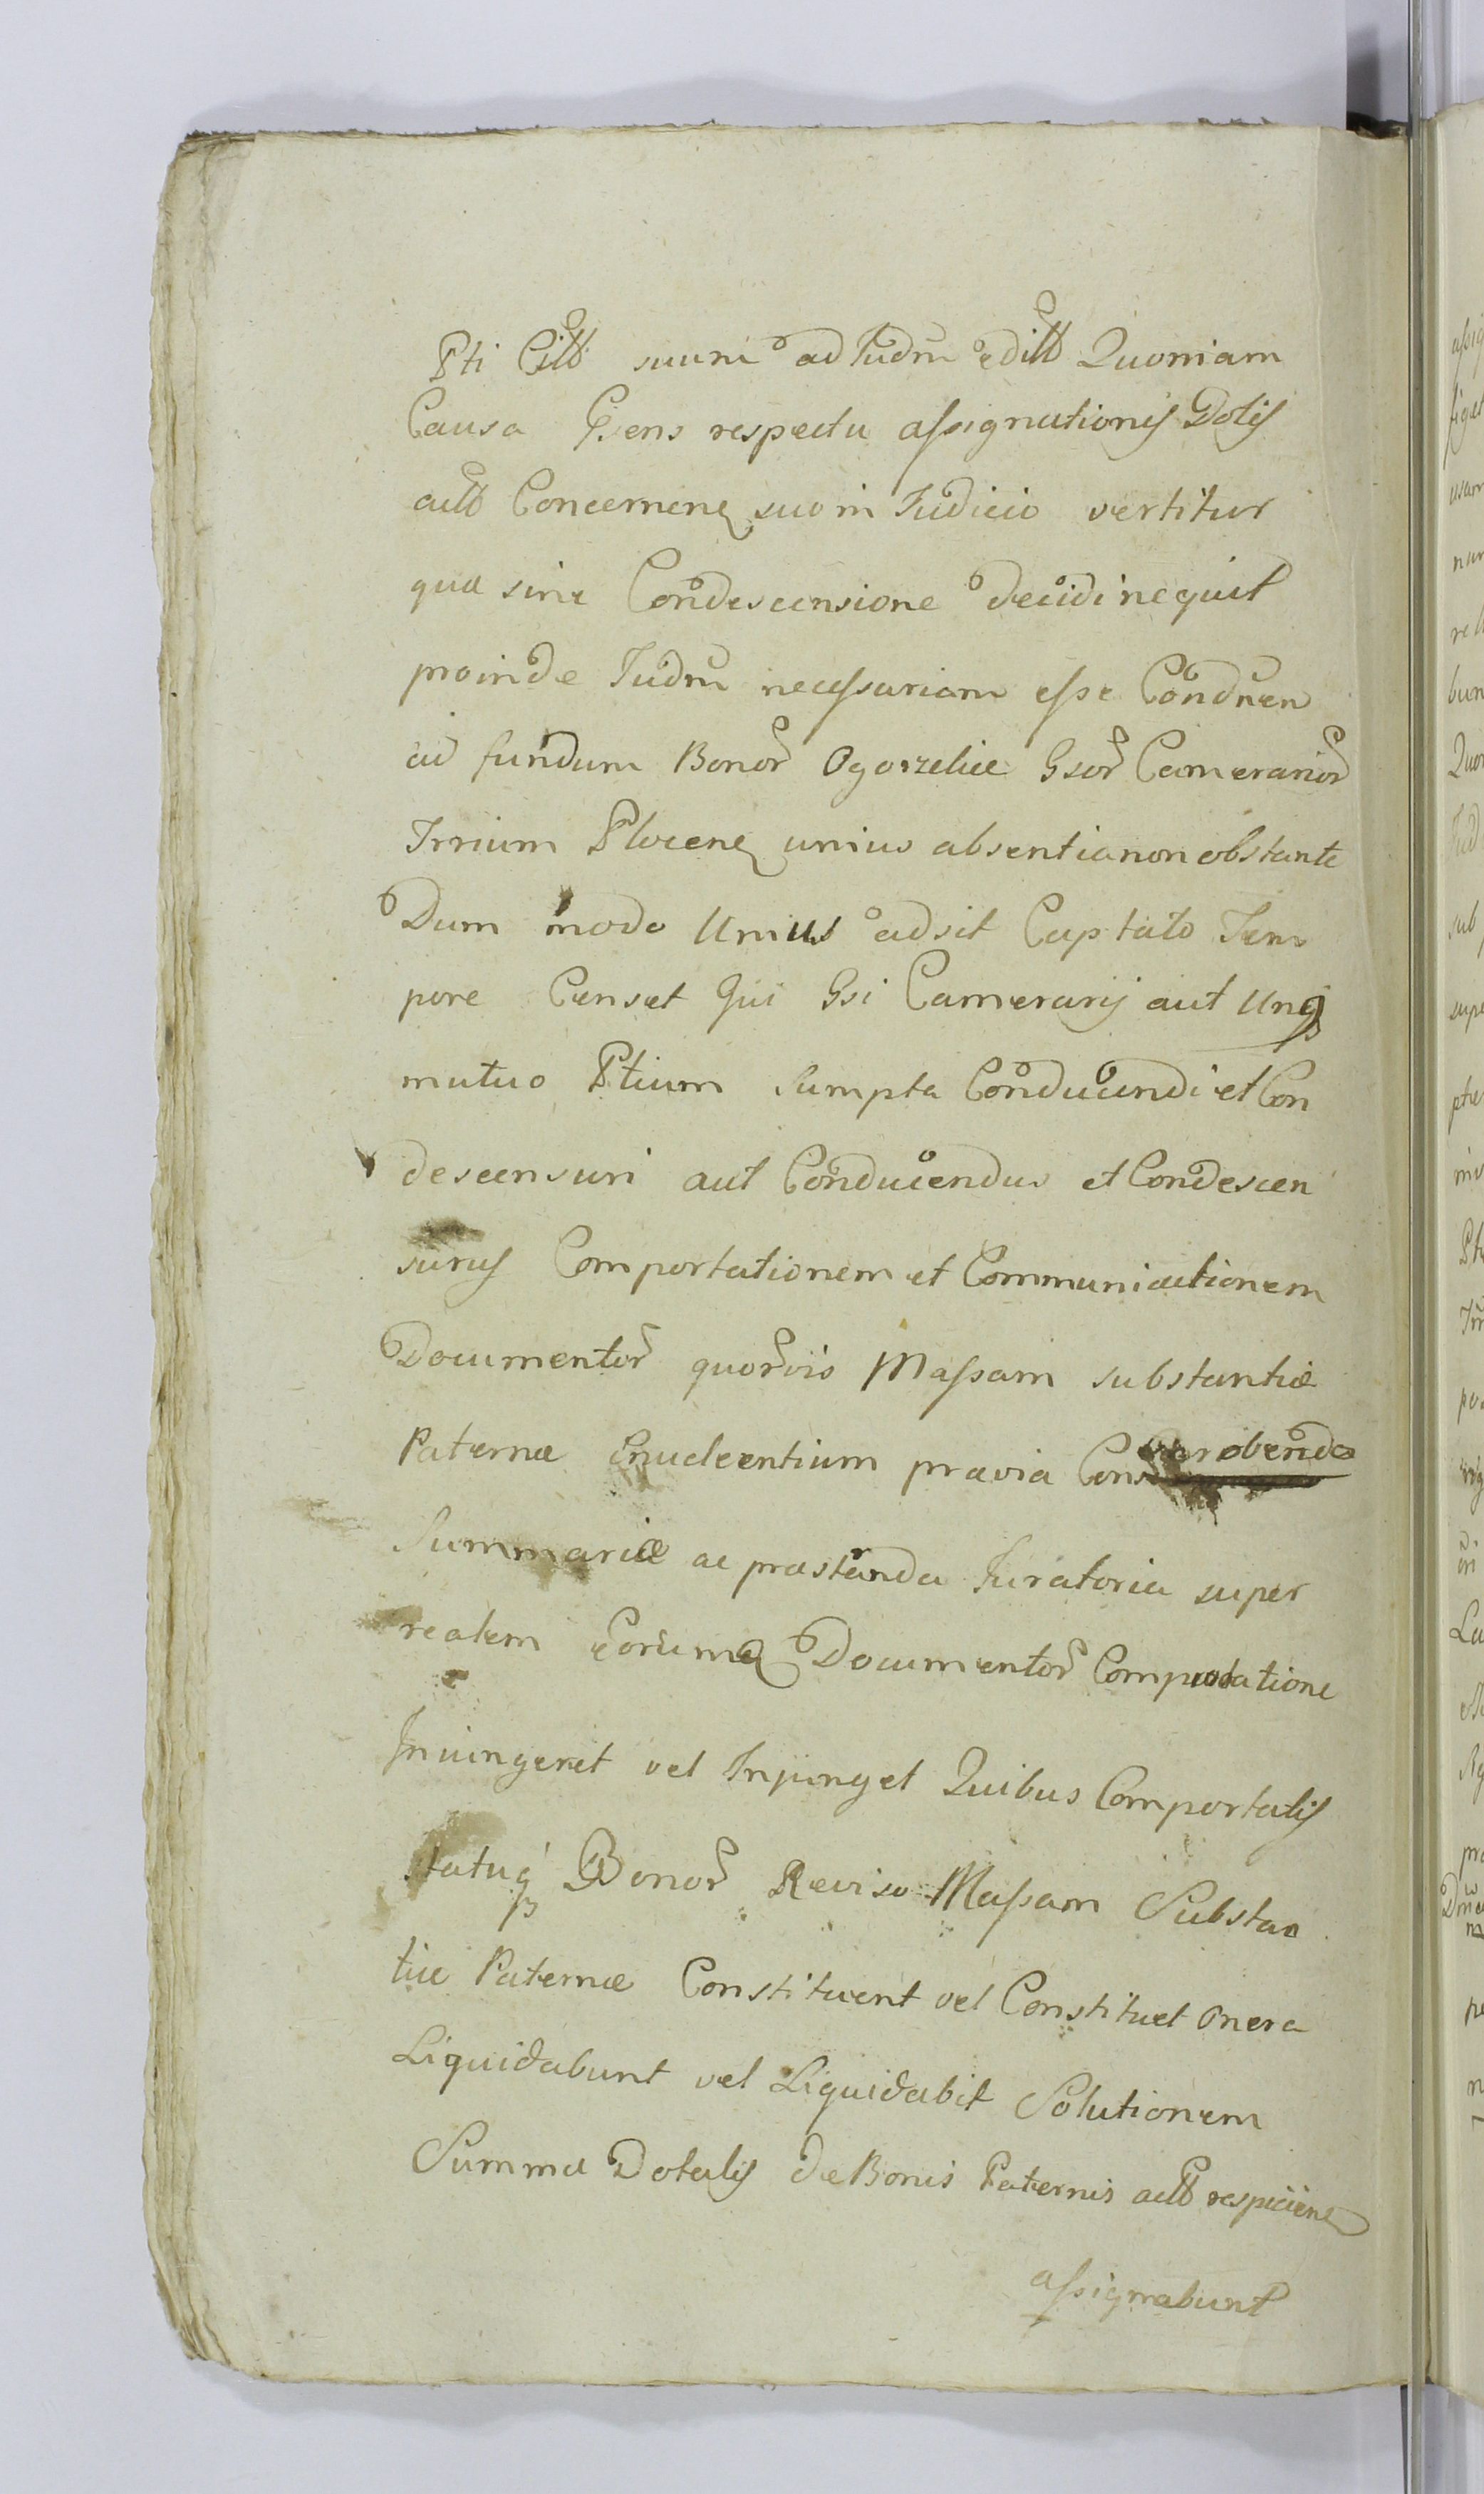 Pti Citt suum ad Judm editt Quoniam
Causa Psens respectu assignationis Dotis
actt Concernen suo in Judicio vertitur
quæ sine Condescensione decidi nequit
proinde Judm necessariam esse Condnen
ad fundum Bonor Ogorzelice Gsor Camerarior
Trrium Plocen unius absentia non obstante
Dum modo Unius adsit Captato Tem
pore Censet Qui Gsi Camerarij aut Unq
mutuo Ptium sumptu Conducendi et Con
descensuri aut Conducendus et Condescen
surus Comportationem et Communicationem
Documentor quorvis Massam substantiæ
Paternæ Enucleentium prævia
Summariæ ac præstanda Juratoria super
realem eorumq Documentor Comportatione
Injungeret vel Injunget Quibus Comportatis
statuq Bonor Reviso Massam Substan
tiæ Paternæ Constituent vel Constituet onera
Liquidabunt vel Liquidabit Solutionem
Summæ Dotalis de Bonis Paternis actt respicien
assignabunt